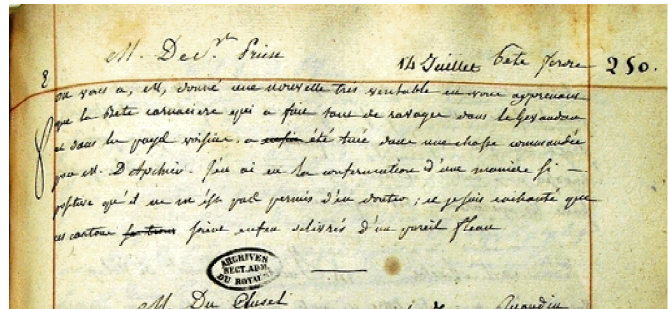 M. De St. Priest 14 Juillet Bete feroce 250.
8
On vous a, M, donné une nouvelle tres veritable en vous apprenant
que la Bete carnaciere qui a fait tant de ravages dans le Gevaudan
et dans les pays voisins, a enfin été tuée dans une chasse commandée
par M. D'Apchier. J'en ai eu la confirmation d'une maniere si
positive qu'il ne m'est pas permis d'en douter; et je suis enchanté que
ces cantons soient enfin delivrés d'un pareil fleau
ARCHIVES
SECT. ADM.
DU ROYAUME
M. Du Cluzel